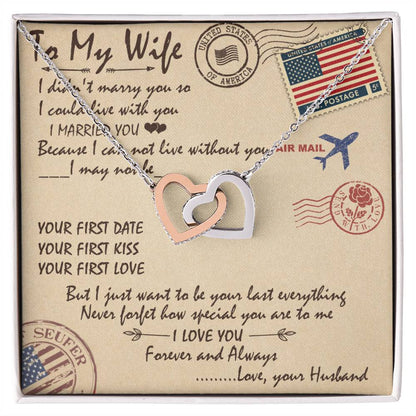 To My Wife
UNITED STATES
OF AMERICA
UNITED STATES OF AMERICA
POSTAGE
5¢
I didn't marry you so
I could live with you
I MARRIED YOU
Because I can not live without you
AIR MAIL
____I may not be
SEND WITH LOVE
YOUR FIRST DATE
YOUR FIRST KISS
YOUR FIRST LOVE
But I just want to be your last everything
Never forfet how special you are to me
I LOVE YOU
Forever and Always
.........Love, your Husband
SEUFER